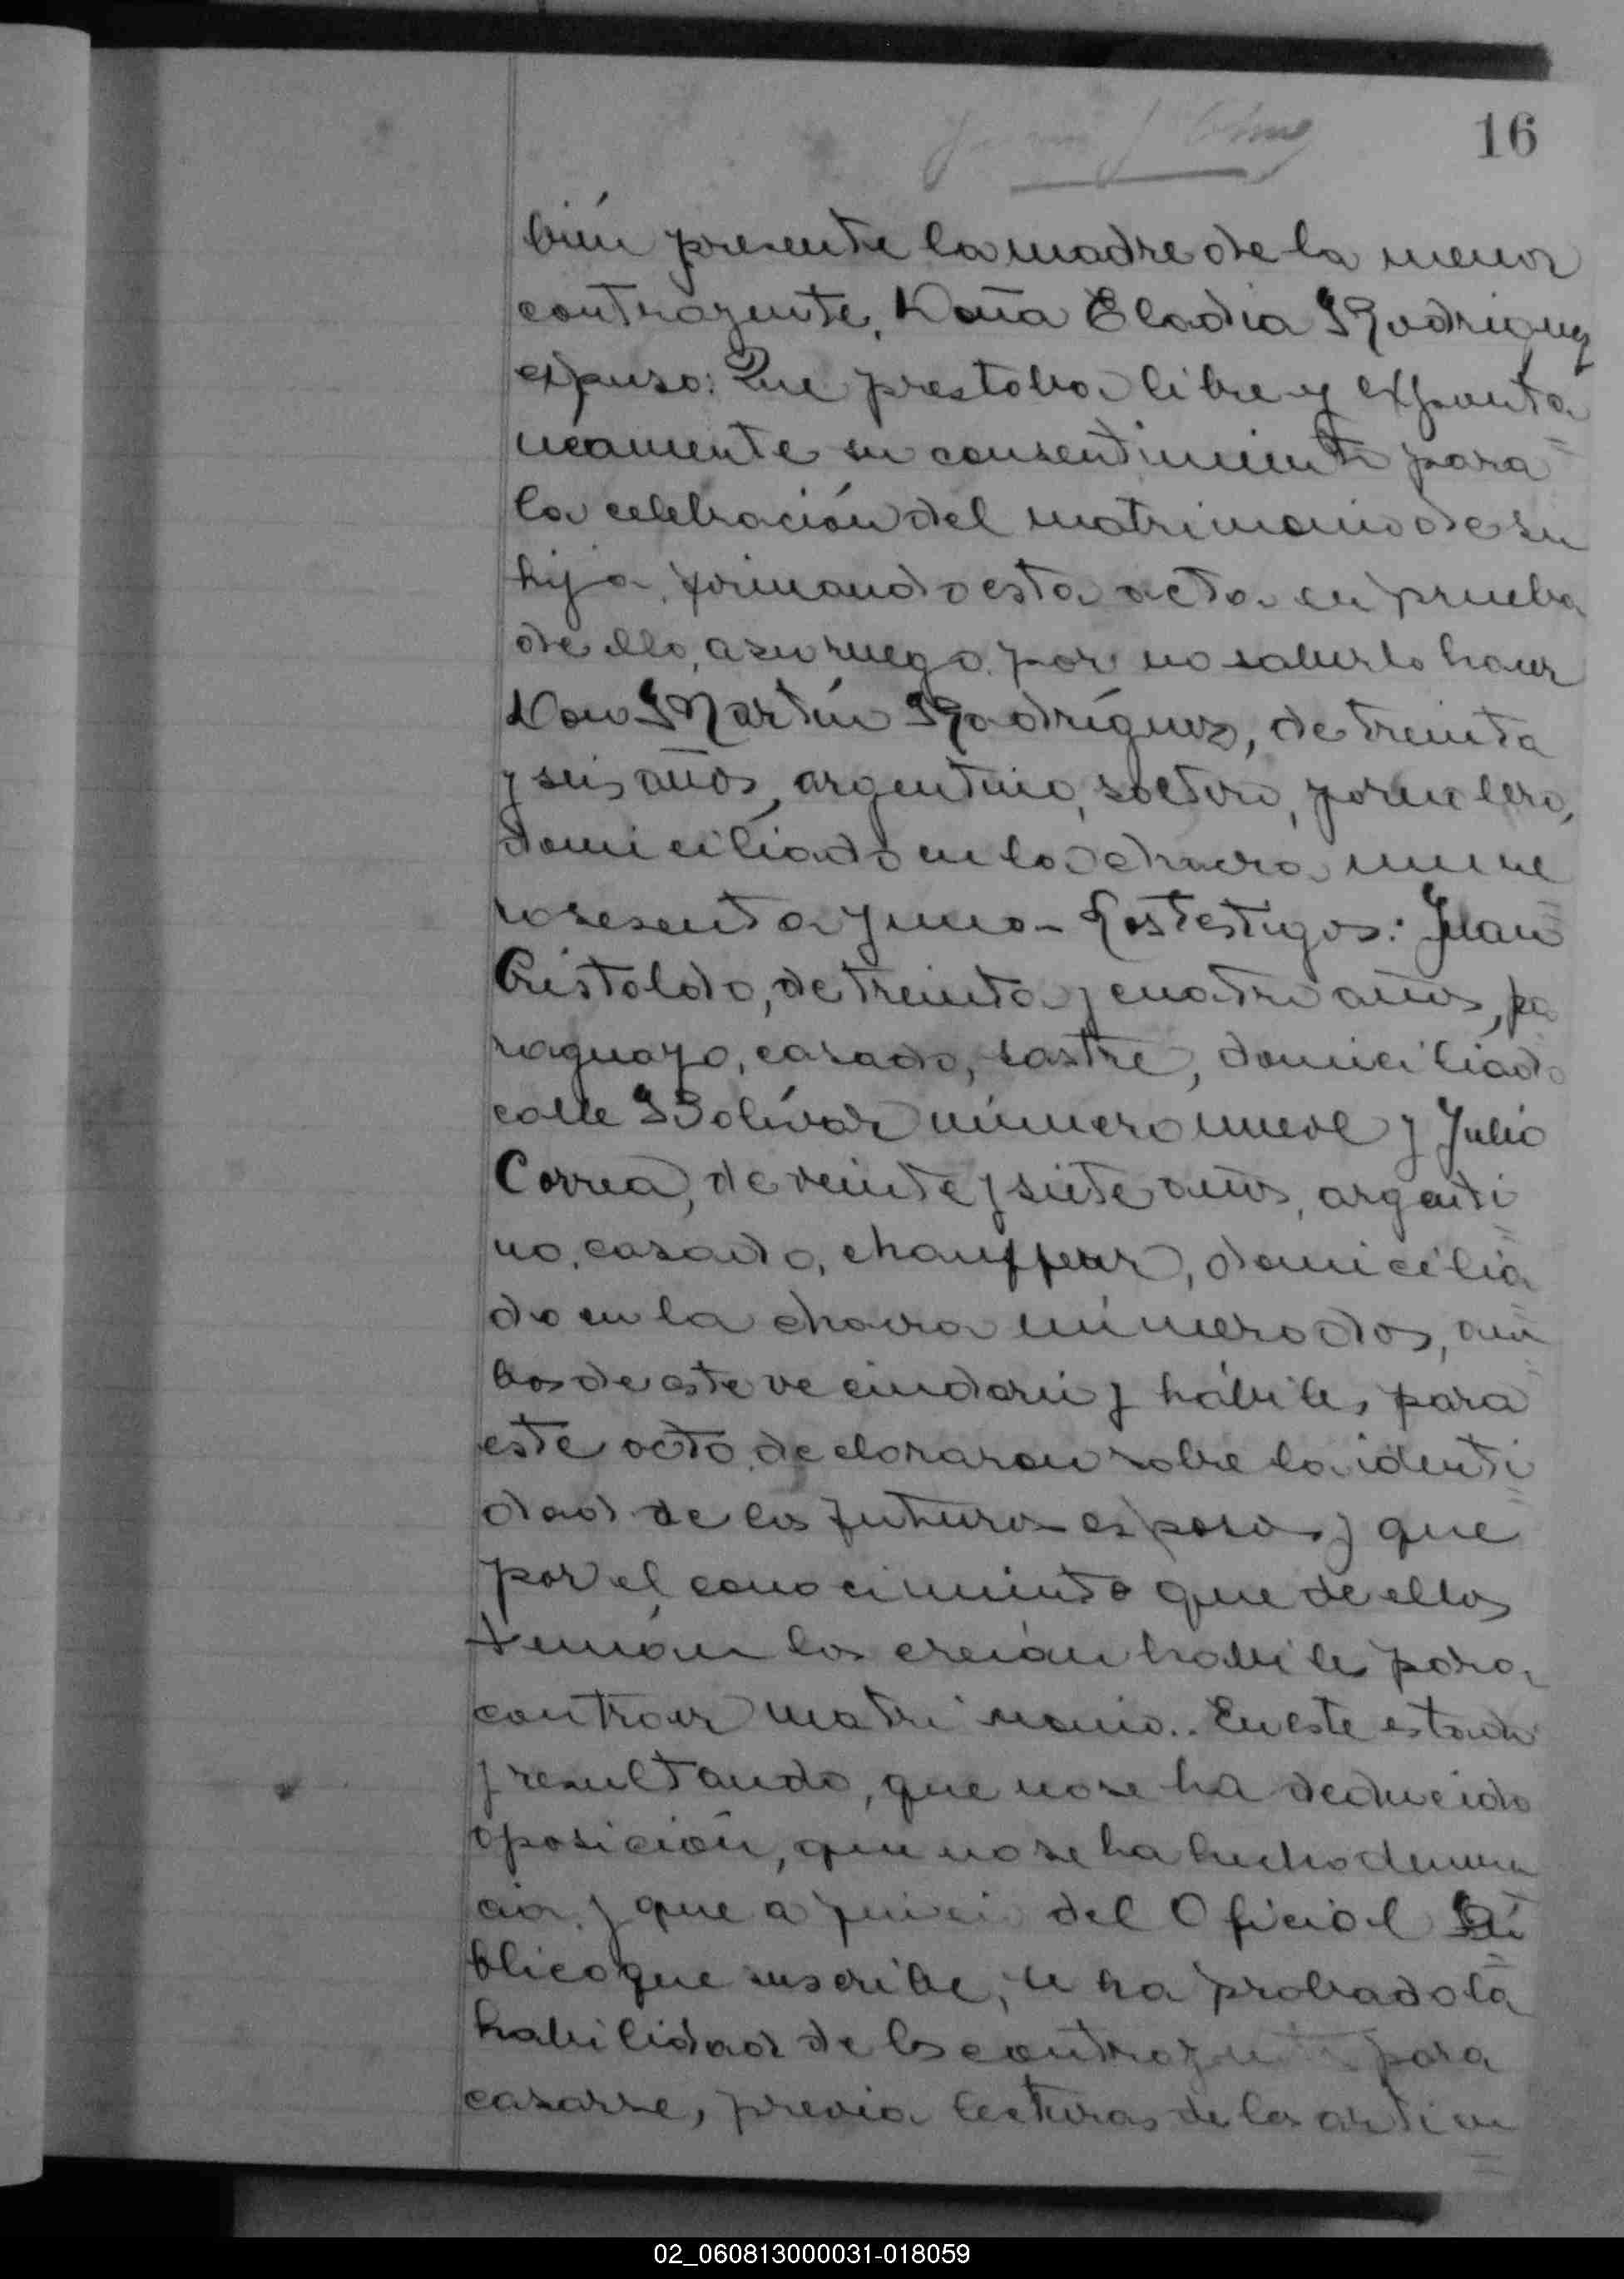 16
bién presente la madre de la menor
contrayente, Doña Eladia Rodriguez
expuso: Que prestaba libre y exponta
neamente su consentimiento para
la celebración del matrimonio de su
hija, firmando esta acta en prueba
de ello, a su ruego por no saberlo hacer
Don Martín Rodríguez, de treinta
y seis años, argentino, soltero, jornalero,
domiciliado en la chacra nume
ro sesenta y uno - Los testigos: Juan
Cristaldo, de treinta y cuatro años, pa
raguayo, casado, sastre, domiciliado
calle Bolívar número nueve y Julio
Correa, de veinte y siete años, argenti
no, casado, chauffeur, domicilia
do en la chacra número dos, am
bos de este vecindario y hábiles para
este acto, declararon sobre la identi
dad de los futuros esposos y que
por el conocimiento que de ellos
tenían los creían habiles para
contraer matrimonio.. En este estado
y resultando, que no se ha deducido
oposición, que no se ha hecho denun
cia y que a juicio del Oficial Pú
blico que suscribe, se ha probado la
habilidad de los contrayentes para
casarse, previa lectura de los artícu
02_060813000031-018059